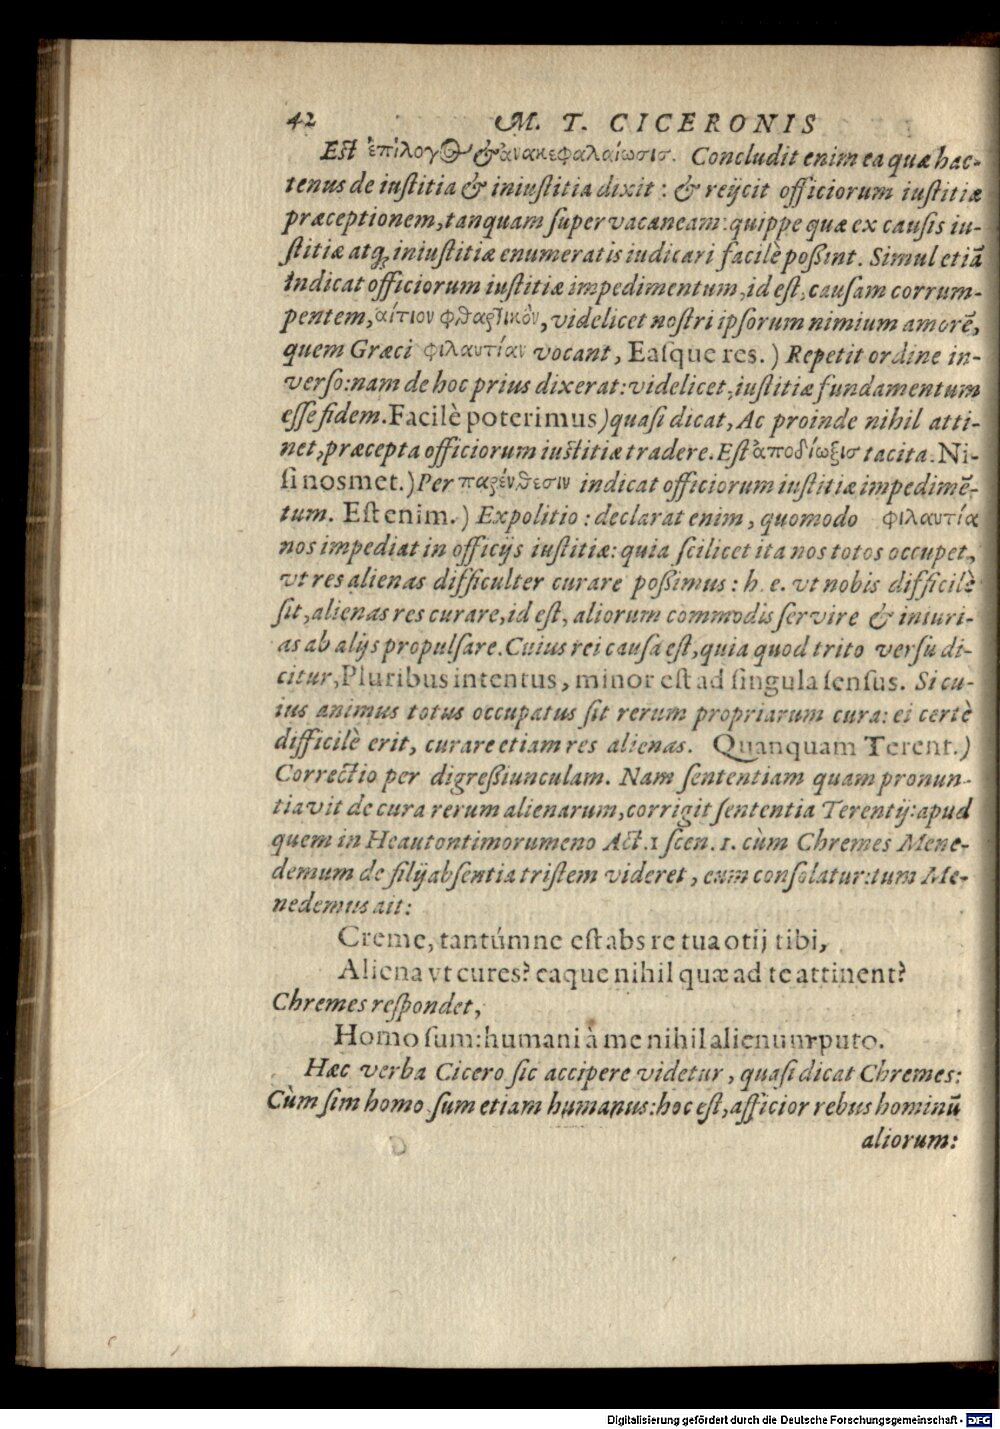 42 M. T. CICERONIS
Est ἐπίλογος & ἀνακεφαλαίωσις. Concludit enim ea quæ hac-
tenus de iustitia & iniustitia dixit: & reijcit officiorum iustitiæ
præceptionem, tanquam supervacaneam: quippe quæ ex causis iu-
stitiæ atq; iniustitiæ enumeratis iudicari facilè poßint. Simul etiā
indicat officiorum iustitiæ impedimentum, id est, causam corrum-
pentem, αἴτιον φθαρτικὸν, videlicet nostri ipsorum nimium amorē,
quem Græci φιλαυτίαν vocant, Easque res.) Repetit ordine in-
verso: nam de hoc prius dixerat: videlicet, iustitiæ fundamentum
esse fidem. Facilè poterimus) quasi dicat, Ac proinde nihil atti-
net, præcepta officiorum iustitiæ tradere. Est ἀποδίωξις tacita. Ni-
si nosmet.) Per παρένθεσιν indicat officiorum iustitiæ impedimē-
tum. Est enim.) Expolitio: declarat enim, quomodo φιλαυτία
nos impediat in officijs iustitiæ: quia scilicet ita nos totos occupet,
vt res alienas difficulter curare poßimus: h. e. vt nobis difficilè
sit, alienas res curare, id est, aliorum commodis servire & iniuri-
as ab alijs propulsare. Cuius rei causa est, quia quod trito versu di-
citur, Pluribus intentus, minor est ad singula sensus. Si cu-
ius animus totus occupatus sit rerum propriarum cura: ei certè
difficilè erit, curare etiam res alienas. Quanquam Terent.)
Correctio per digreßiunculam. Nam sententiam quam pronun-
tiavit de cura rerum alienarum, corrigit sententia Terentij: apud
quem in Heautontimorumeno Act. 1 scen. 1. cùm Chremes Mene-
demum de filij absentia tristem videret, eum consolatur: tum Me-
nedemus ait:
Creme, tantúmne est abs re tua otij tibi,
Aliena vt cures? eaque nihil quæ ad te attinent?
Chremes respondet,
Homo sum: humani à me nihil alienum puto.
Hæc verba Cicero sic accipere videtur, quasi dicat Chremes:
Cùm sim homo sum etiam humanus: hoc est, afficior rebus hominū
aliorum:
Digitalisierung gefördert durch die Deutsche Forschungsgemeinschaft - DFG